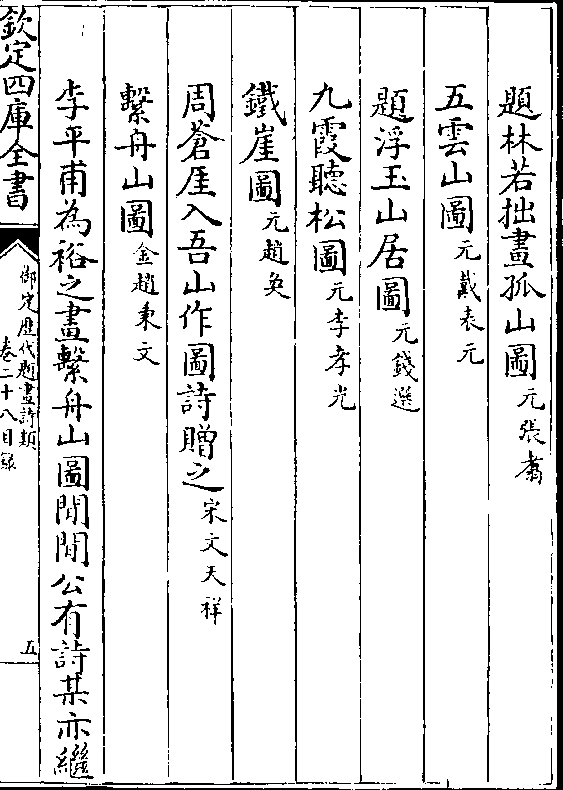 題林若拙畫孤山圖元張翥
五雲山圖元戴表元
題浮玉山居圖元錢選
九霞聽松圖元李孝光
鐵崖圖元趙奐
周蒼厓入吾山作圖詩贈之宋文天祥
繫舟山圖金趙秉文
李平甫為裕之畫繫舟山圖閒閒公有詩某亦繼
欽定四庫全書
御定歷代題畫詩類
卷二十八目錄
五